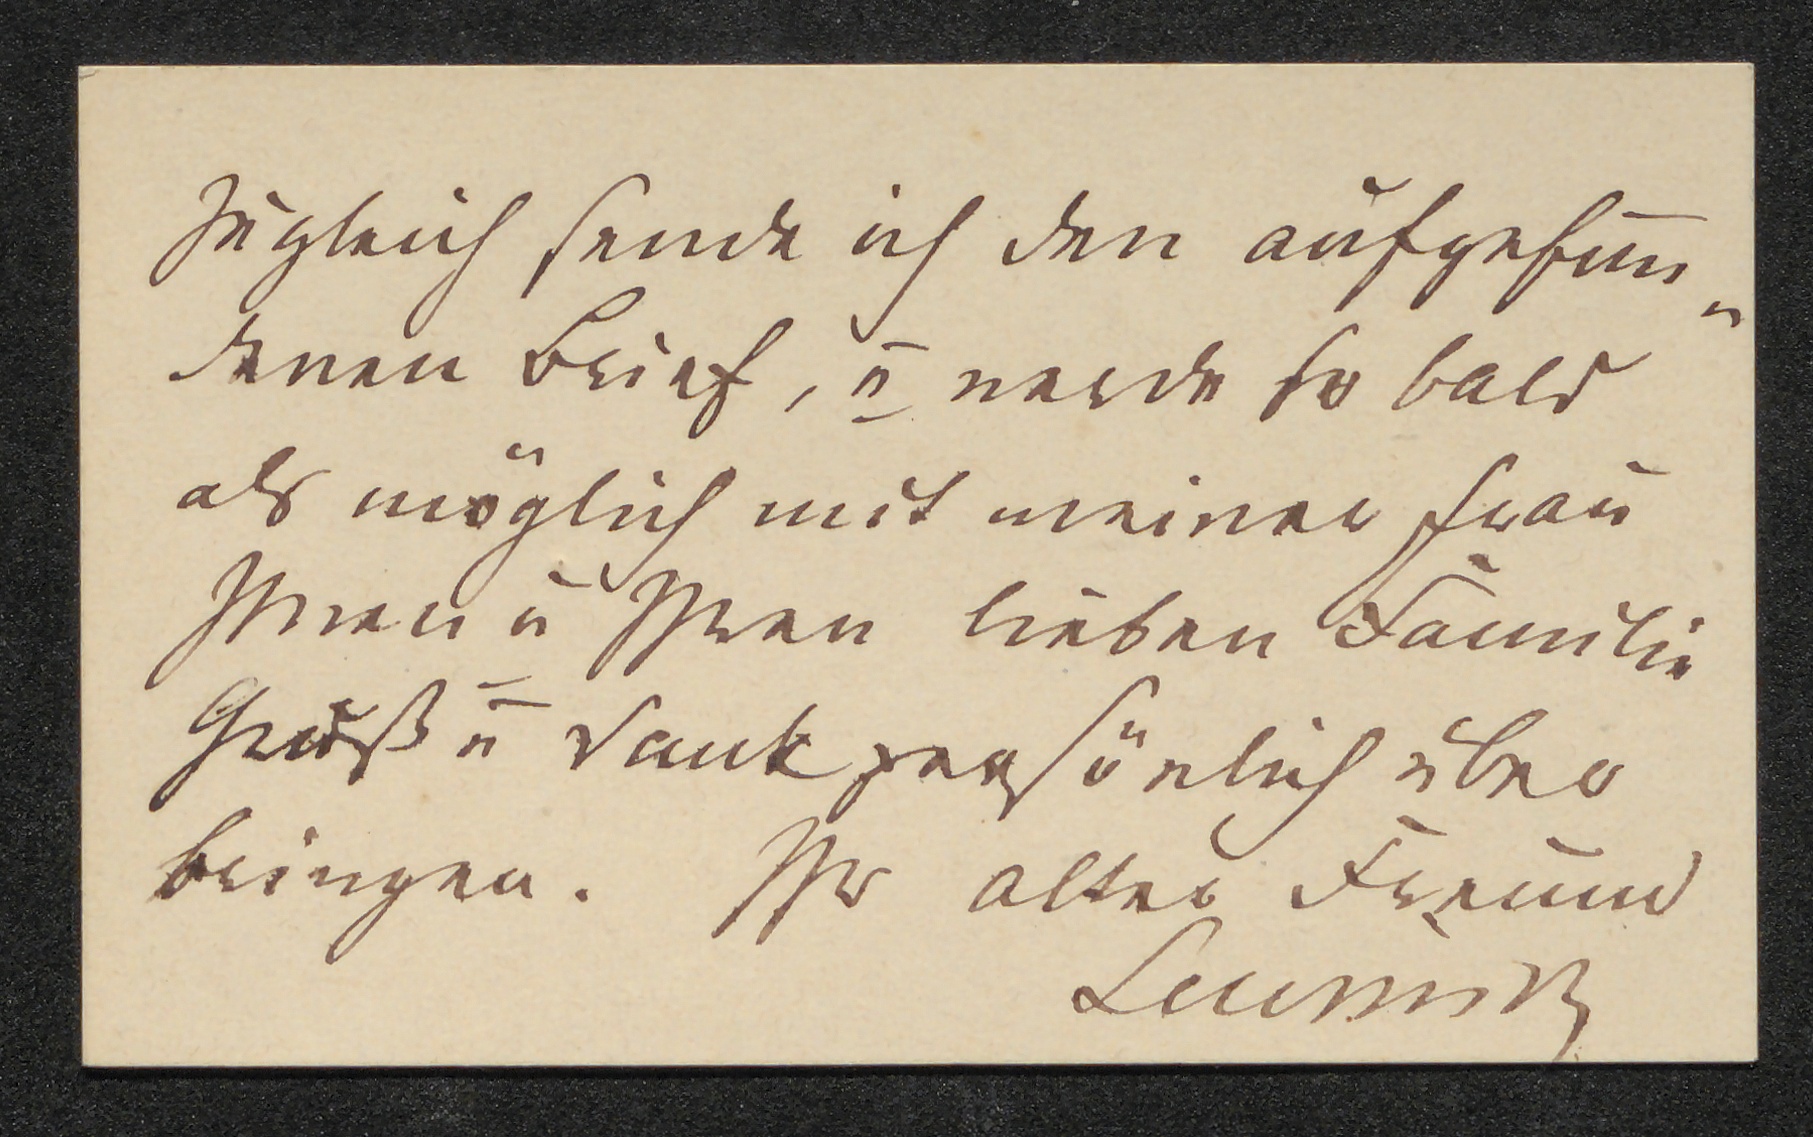 Zugleich sende ich den aufgefun„
denen Brief, u werde so bald
als möglich mit meiner Frau
Ihnen u Ihrer lieben Familie
Gruß u Dank persönlich über
bringen. Ihr alter Freund